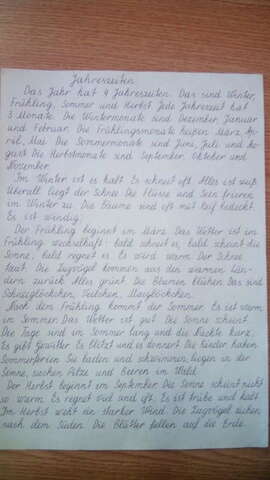 Jahreszeiten
Das Jahr hat 4 Jahreszeiten. Das sind Winter,
Frühling, Sommer und Herbst. Jede Jahreszeit hat
3 Monate. Die Wintermonate sind Dezember, Januar
und Februar. Die Frühlingsmonate heißen März, Ap-
ril, Mai. Die Sommermonate sind Juni, Juli und
Die Herbstmonate sind September, Oktober und
November.
Im Winter ist es kalt. Es schneit oft. Alles ist weiß
Überall liegt der Schnee. Die Flüsse und Seen frieren
im Winter zu. Die Bäume sind oft mit Reif bedeckt.
Es ist windig.
Der Frühling beginnt im März. Das Wetter ist im
Frühling wechselhaft - bald schneit es, bald scheint die
Sonne, bald regnet es. Es wird warm. Der Schnee
taut. Die Zugvögel kommen aus den warmen Län-
dern zurück. Alles grünt. Die Blumen blühen. Das sind
Schneeglöckchen, Veilchen, Maiglöckchen.
Nach dem Frühling kommt der Sommer. Es ist warm
im Sommer. Das Wetter ist gut. Die Sonne scheint.
Die Tage sind im Sommer lang und die Nächte kurz.
Es gibt Gewitter. Es blitzt und es donnert. Die Kinder haben
Sommerferien. Sie baden und schwimmen, liegen in der
Sonne, suchen Pilze und Beeren im Wald.
Der Herbst beginnt im September. Die Sonne scheint nicht
so warm. Es regnet viel und oft. Es ist trübe und kalt.
Im Herbst weht ein starker Wind. Die Zugvögel ziehen
nach dem Süden. Die Blätter fallen auf die Erde.